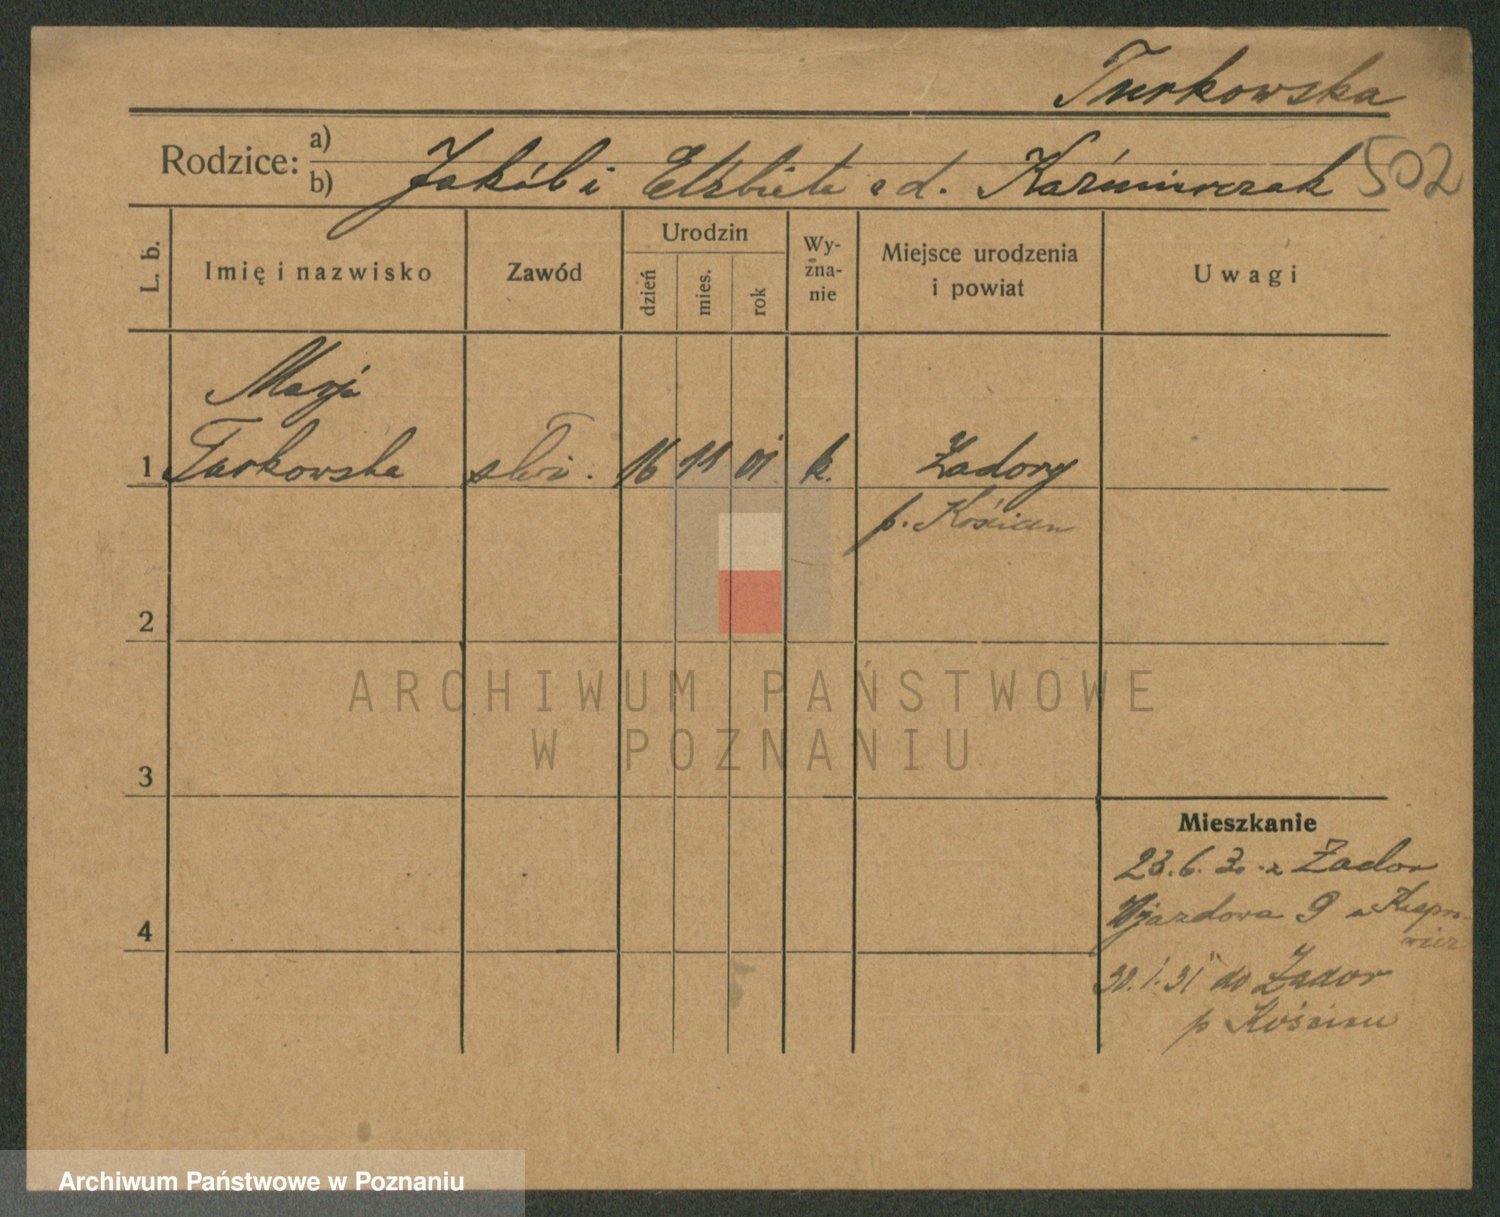 Turkowska
Rodzice: a) b) Jakób i Elżbieta e d. Kaźmierczak 502
L. b. Imię i nazwisko Zawód Urodzin dzień mies. rok Wy-zna-nie Miejsce urodzenia i powiat Uwagi
Marja
1 Turkowska służ. 16 11 01 k. Żadory
p. Kościan
2
ARCHIWUM PAŃSTWOWE
W POZNANIU
3
Mieszkanie
23.6.30 z Żador
Wjazdowa 9 u Kaspro-
wicz
4
30.1.31 do Żador
p Kościan
Archiwum Państwowe w Poznaniu